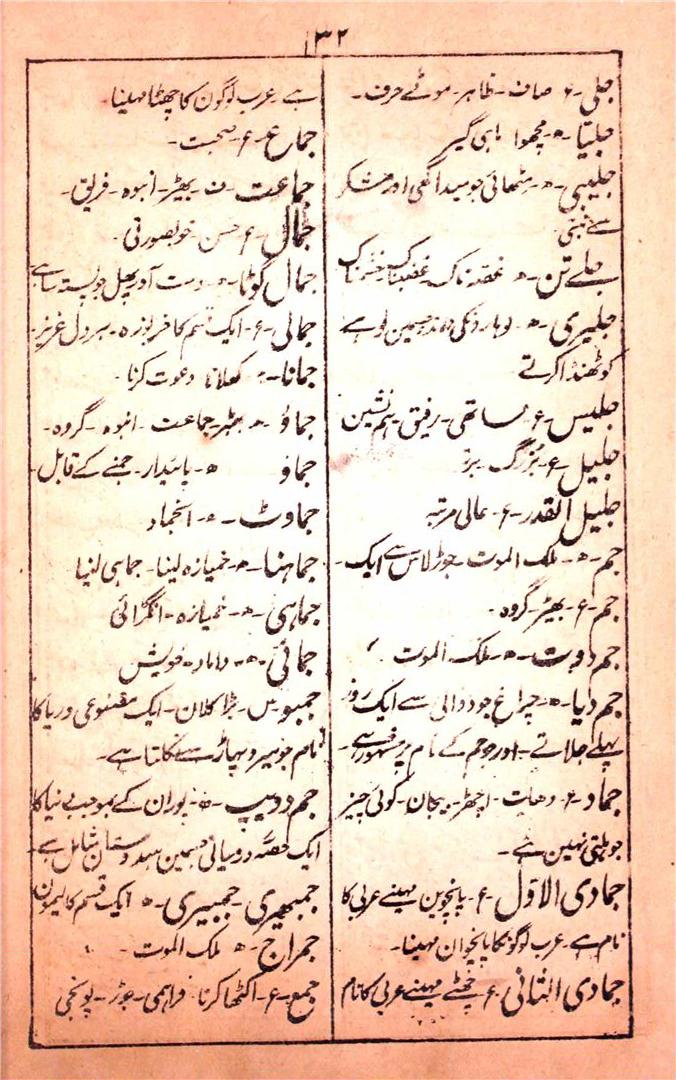 ۱۳۲
جلی۔ ع۔ صاف۔ ظاہر۔ موٹے حرف۔
جلیتا۔ ھ۔ مچھوا ماہی گیر
جلیبی۔ ھ۔ مٹھائی جو میدا گھی اور شکر
سے بنتی۔
جلے تن۔ ھ۔ غصہ ناک۔ غضبناک۔ خشمناک
جلیری۔ ھ۔ لوہار ونکی ناند جسمین لوہے
کو ٹھنڈا کرتے
جلیس۔ ع۔ ساتھی۔ رفیق۔ ہم نشین
جلیل۔ ع۔ بزرگ۔ بڑا
جلیل القدر۔ ع۔ عالی مرتبہ
جم۔ ھ۔ ملک الموت۔ جوڑلاس سے ایک۔
جم۔ ع۔ بھیڑ۔ گروہ۔
جم دوت۔ ھ۔ ملک الموت
جم دیا۔ ھ۔ چراغ جو دوالی سے ایک روز
پہلے جلاتے۔ اور جم کے نام پر مشہور ہے۔
جماد۔ ع۔ دھات۔ پتھر۔ بیجان۔ کوئی چیز
جو ہلتی نہین ہے۔
جمادی الاول۔ ع۔ پانچوین مہینے عربی کا
نام ہے۔ عرب لوگونکا پانچوان مہینا۔
جمادی الثانی۔ ع۔ چھٹے مہینے عربی کا نام
ہے۔ عرب لوگون کا چھٹا مہینا۔
جماع۔ ع۔ صحبت۔
جماعت۔ ف۔ بھیڑ۔ انبوہ۔ فریق۔
جمال۔ ع۔ حسن۔ خوبصورتی۔
جمال گوٹا۔ ھ۔ دست آور پھل جو پستہ سا ہے
جمالی۔ ع۔ ایک قسم کا خربوزہ۔ ہردل عزیز۔
جمانا۔ ھ۔ کھلانا دعوت کرنا۔
جماؤ۔ ھ۔ بھیڑ۔ جماعت۔ انبوہ۔ گروہ۔
جماو ھ۔ پائیدار۔ جمنے کے قابل۔
جماوٹ۔ ھ۔ انجماد
جماہنا۔ ھ۔ خمیازہ لینا۔ جماہی لینا
جماہی۔ ھ۔ خمیازہ۔ انگڑائی
جمائی۔ ھ۔ داماد۔ خویش
جمبو۔ س۔ بڑا کلان۔ ایک مصنوعی دریا کا
نام جو میرو پہاڑ سے نکلتا ہے۔
جم دویپ۔ ھ۔ پوران کے بموجب دنیا کا
ایک حصہ درمیانی جسمین ہندوستان شامل ہے۔
جمبھیری۔ جمبیری۔ ھ۔ ایک قسم کا لیمون
جمراج۔ ھ۔ ملک الموت۔
جمع۔ ع۔ اکٹھا کرنا۔ فراہمی۔ جوڑ۔ پونجی